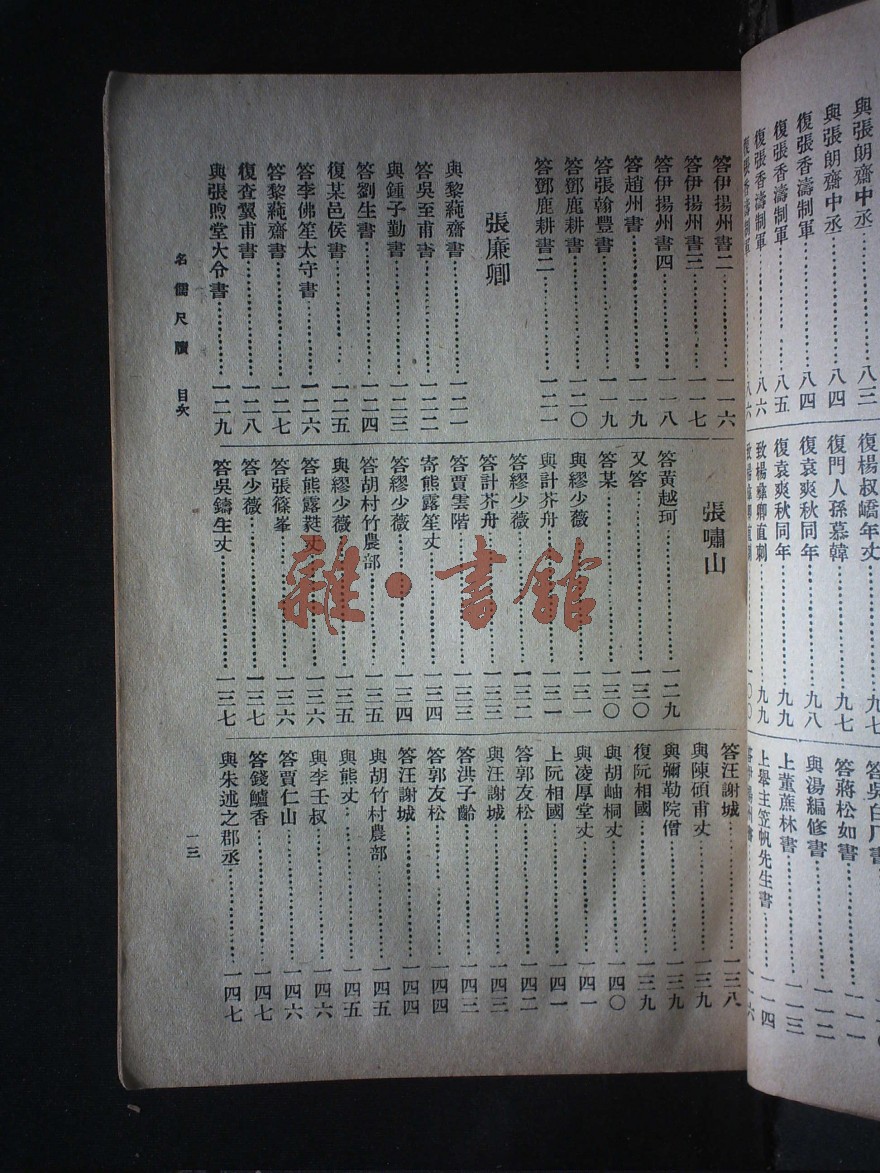 與張朗齋中丞…………八三
與張朗齋中丞…………八四
復張香濤制軍…………八四
復張香濤制軍…………八五
復張香濤制軍…………八六
復張香濤制軍…………八六
復楊叔嶠年丈…………九七
復門人孫慕韓…………九七
復袁爽秋同年…………九八
復袁爽秋同年…………九九
直刺…………九九
一〇〇
答蔣松如書…………一一一
與湯編修書…………一一二
上董蔗林書…………一一三
上舉主笠帆先生書……一一四
答伊揚州書
答伊揚州書二…………一一六
答伊揚州書三…………一一七
答伊揚州書四…………一一八
答趙州書…………一一九
答張翰豐書…………一一九
答鄧鹿耕書…………一二〇
答鄧鹿耕書二…………一二一
張廉卿
與黎蒓齋書…………一二一
答吳至甫書…………一二二
與鍾子勤書…………一二三
答劉生書…………一二四
復某邑侯書…………一二五
答李佛笙太守書…………一二六
答黎蒓齋書…………一二七
復查翼甫書…………一二八
與張煦堂大令書…………一二九
張嘯山
答黃越珂…………一二九
又答…………一三〇
答某…………一三〇
與繆少薇…………一三一
與計芥舟…………一三一
答繆少薇…………一三二
答計芥舟…………一三三
答賈雲階…………一三三
寄熊露笙丈…………一三四
答繆少薇…………一三四
答胡村竹農部…………一三五
與繆少薇…………一三五
答熊露蕤丈…………一三六
答張篠峯…………一三六
答少薇…………一三七
答吳鑄生丈…………一三七
答汪謝城…………一三八
與陳碩甫丈…………一三九
與彌勒院僧…………一三九
復阮相國…………一三九
與胡岫桐丈…………一四〇
與凌厚堂丈…………一四一
上阮相國…………一四一
答郭友松…………一四二
與汪謝城…………一四三
答洪子齡…………一四三
答郭友松…………一四四
答汪謝城…………一四四
與胡竹村農部…………一四五
與熊丈…………一四五
與李壬叔…………一四六
答賈仁山…………一四六
答錢鱸香…………一四七
與朱述之郡丞…………一四七
名儒尺牘 目次
一三
雜·書館